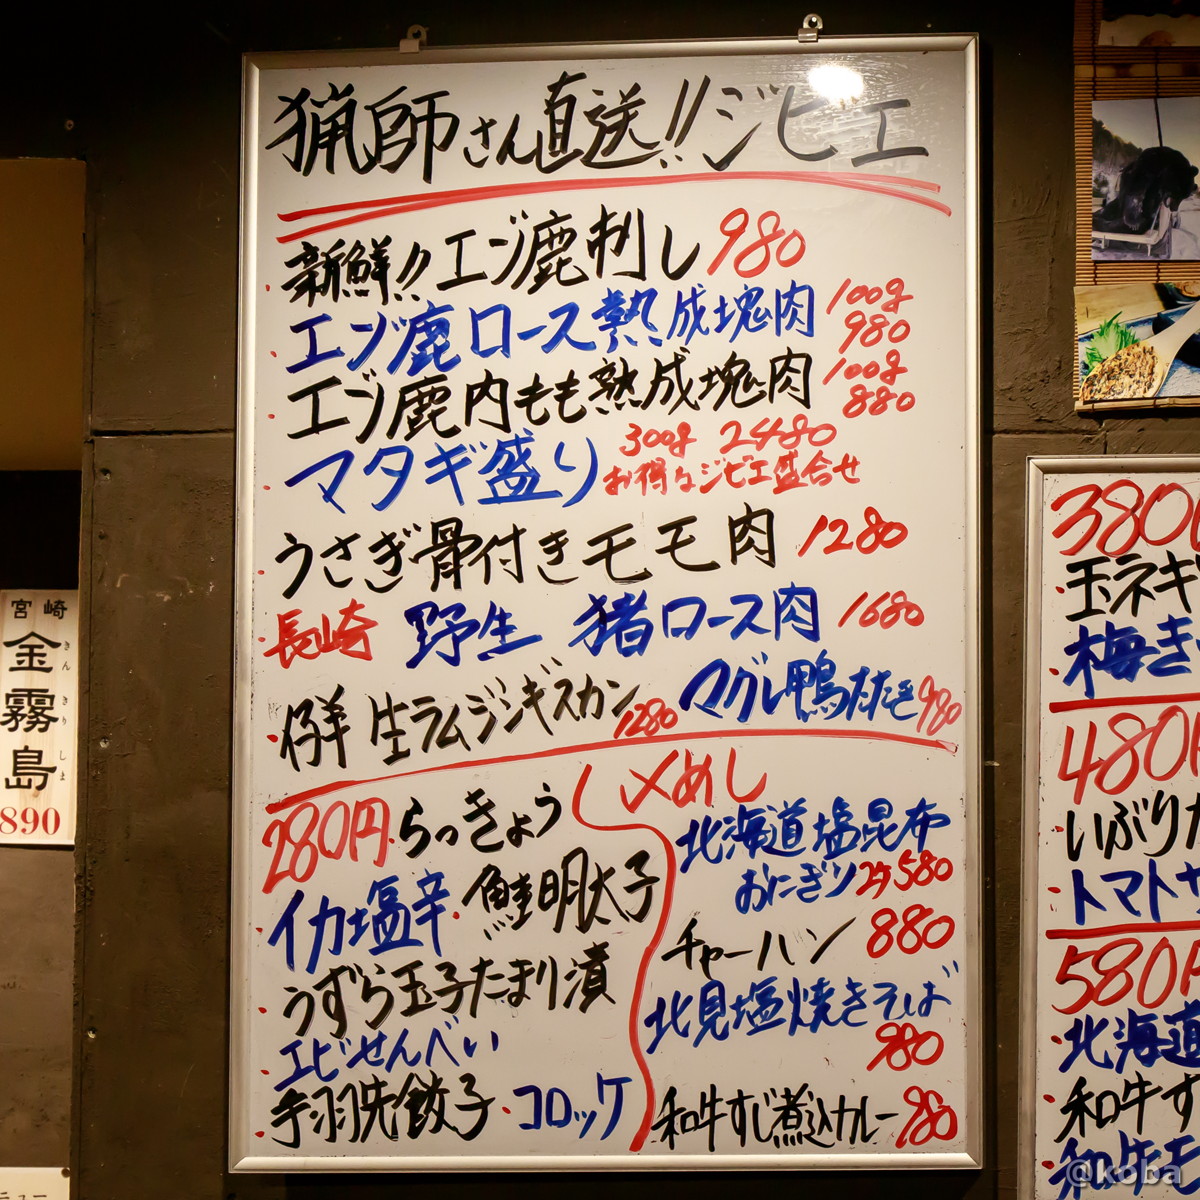 猟師さん直送!!ジビエ
新鮮!!エゾ鹿刺し 980
エゾ鹿ロース熟成塊肉 100g 980
エゾ鹿内もも熟成塊肉 100g 880
マタギ盛り 300g 2480
お得なジビエ盛合せ
うさぎ骨付きモモ肉 1280
長崎 野生 猪ロース肉 1680
仔羊 生ラムジンギスカン 1280
マグレ鴨たたき 980
280円
らっきょう
イカ塩辛
鮭明太子
うずら玉子たまり漬
エビせんべい
手羽先餃子
コロッケ
〆めし
北海道塩昆布
おにぎり 2ケ580
チャーハン 880
北見塩焼きそば
980
和牛すじ煮込カレー 980
宮崎
金霧島
きんきりしま
890
ニュー
380
玉ネギ
梅き
480
いぶり
トマト
580
北海道
和牛す
和牛モ
@koba